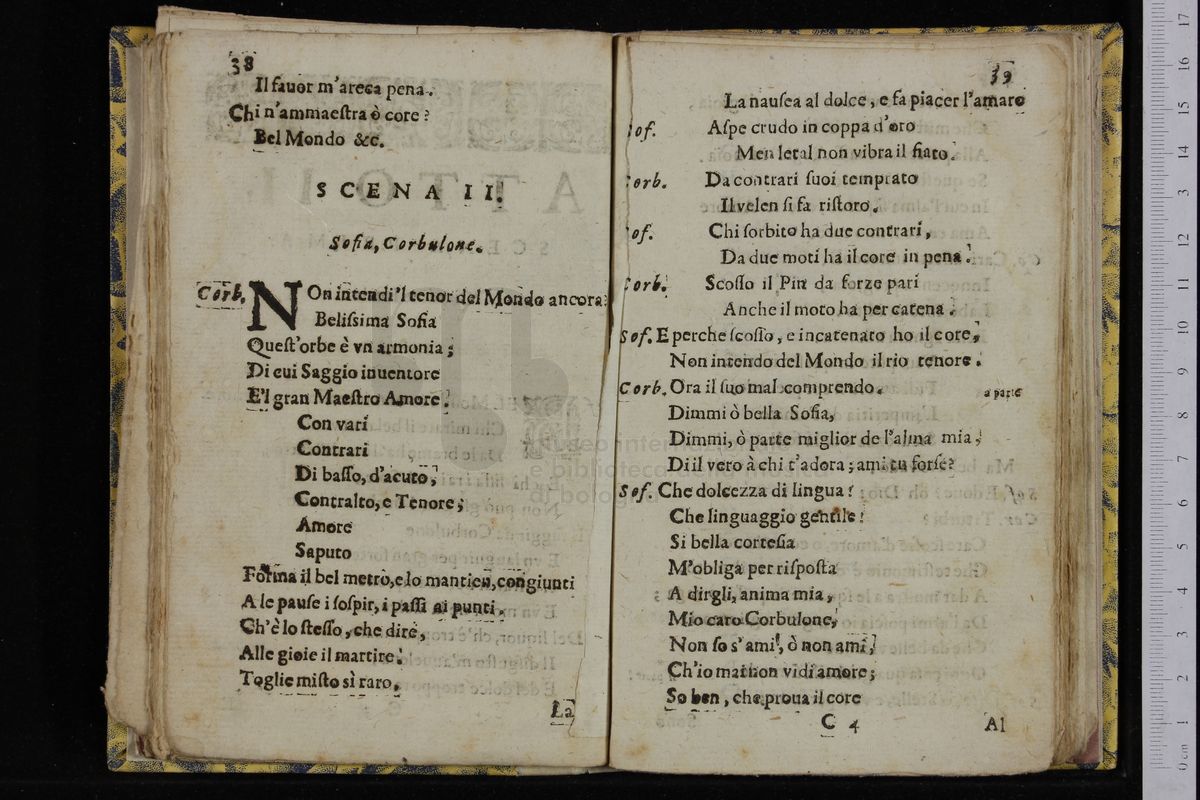 38
Il fauor m'areca pena.
Chi n'ammaeſtra ò core?
Bel Mondo &c.
SCENA II.
Sofia, Corbulone.
Corb. NOn intendi 'l tenor del Mondo ancora?
Beliſsima Sofia
Queſt'orbe è vn armonia;
Di cui Saggio inuentore
E'l gran Maeſtro Amore.
Con vari
Contrari
Di baſſo, d'acuto,
Contralto, e Tenore;
Amore
Saputo
Forma il bel metro, e lo mantien, congiunti
A le pauſe i ſoſpir, i paſſi ai punti.
Ch'è lo ſteſſo, che dire,
Alle gioie il martire.
Toglie miſto sì raro,
La
39
La nauſea al dolce, e fa piacer l'amaro
Sof. Aſpe crudo in coppa d'oro
Men letal non vibra il fiato.
Corb. Da contrari ſuoi temprato
Il velen ſi fa riſtoro.
Sof. Chi ſorbito ha due contrari,
Da due moti ha il core in pena.
Corb. Scoſſo il Pin da forze pari
Anche il moto ha per catena.
Sof. E perche ſcoſſo, e incatenato ho il core,
Non intendo del Mondo il rio tenore.
Corb. Ora il ſuo mal comprendo. a parte
Dimmi ò bella Sofia,
Dimmi, ò parte miglior de l'alma mia,
Di il vero à chi t'adora; ami tu forſe?
Sof. Che dolcezza di lingua!
Che linguaggio gentile!
Si bella corteſia
M'obliga per riſpoſta
A dirgli, anima mia,
Mio caro Corbulone,
Non ſo s'ami, ò non ami,
Ch'io mai non vidi amore;
So ben, che proua il core
C 4
Al